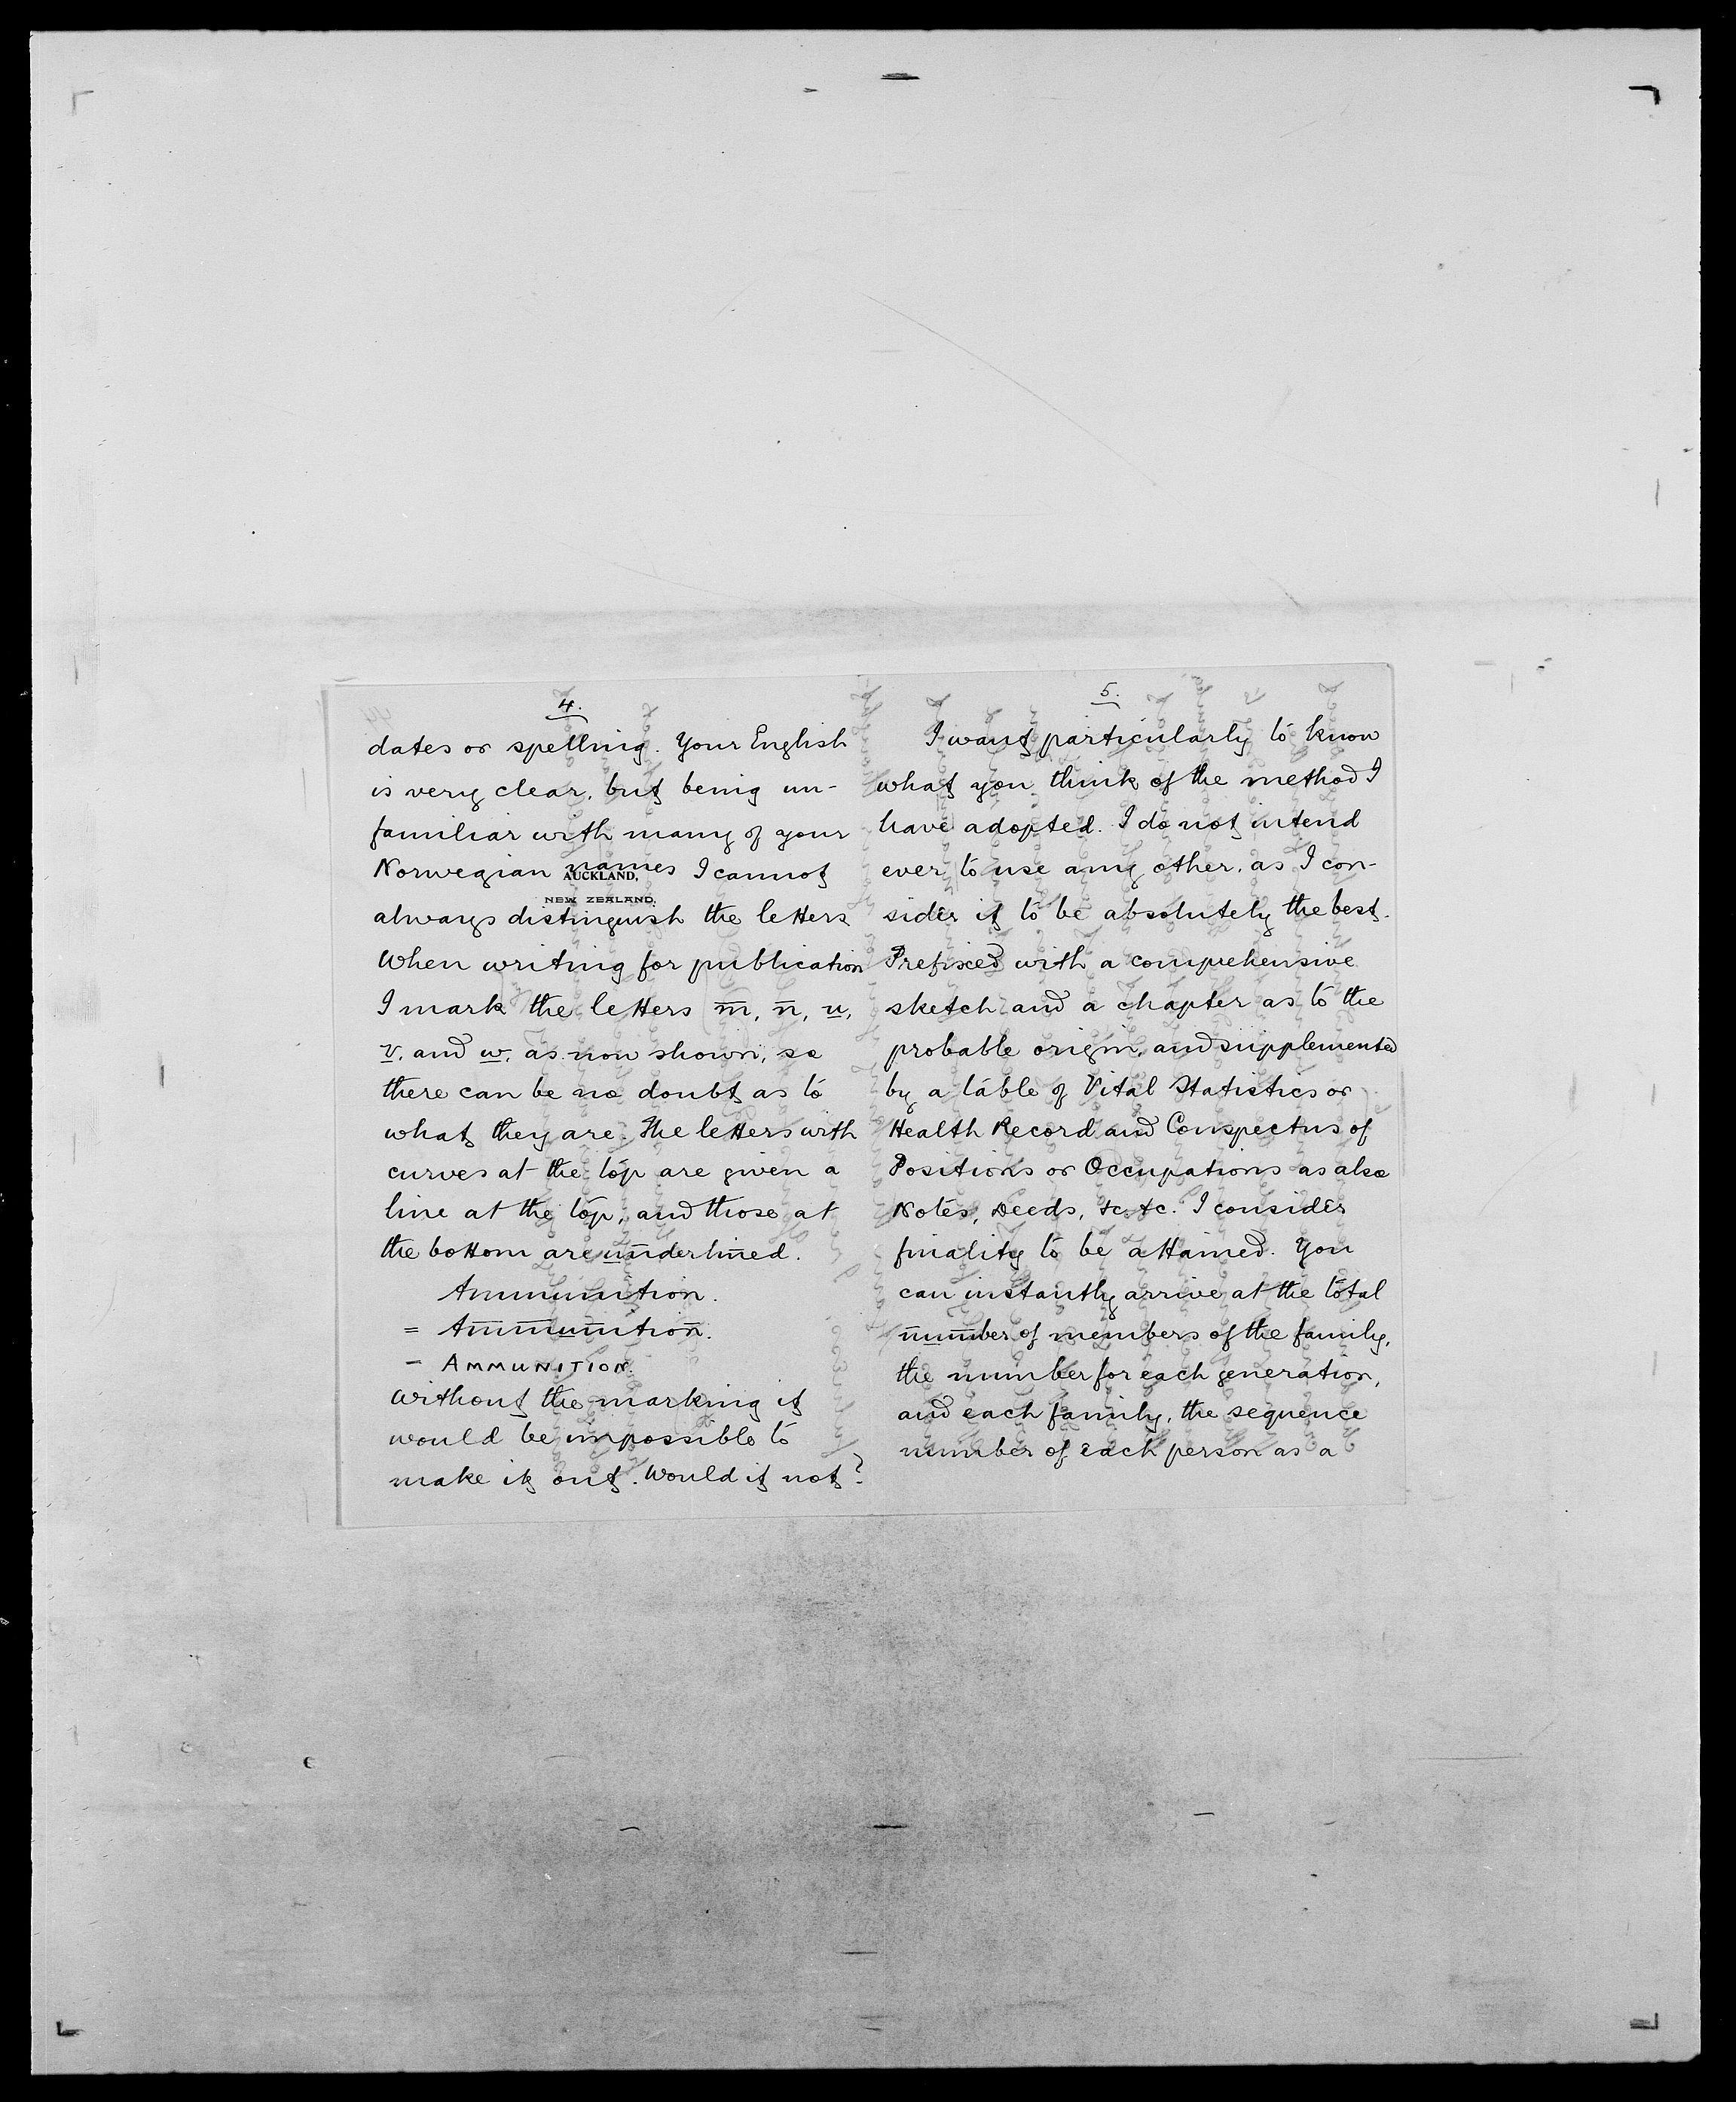 4.
dates or spelling. Your English
is very clear, but being un-
familiar with many of your
Norwegian names I cannot
AUCKLAND,
NEW ZEALAND.
always distinguish the letters
When writing for publication
I mark the letters m̅, n̅, u̲,
v̲, and w̲, as now shown, so
there can be no doubt as to
what they are. The letters with
curves at the top are given a
line at the top, and those at
the bottom are u̲n̅derlin̅ed.
Ammunition.
= Am̅m̅u̲n̅ition̅.
- AMMUNITION.
Without the marking it
would be impossible to
make it out. Would it not?
5.
I want particularly to know
what you think of the method I
have adopted. I do not intend
ever to use any other, as I con-
sider it to be absolutely the best.
Prefixed with a comprehensive
sketch and a chapter as to the
probable origin, and supplemented
by a table of Vital Statistics or
Health Record and Conspectus of
Positions or Occupations as also
Notes, Deeds, &c. &c. I consider
finality to be attained. You
can instantly arrive at the total
n̅u̲m̅ber of members of the family,
the number for each generation,
and each family, the sequence
number of each person as a